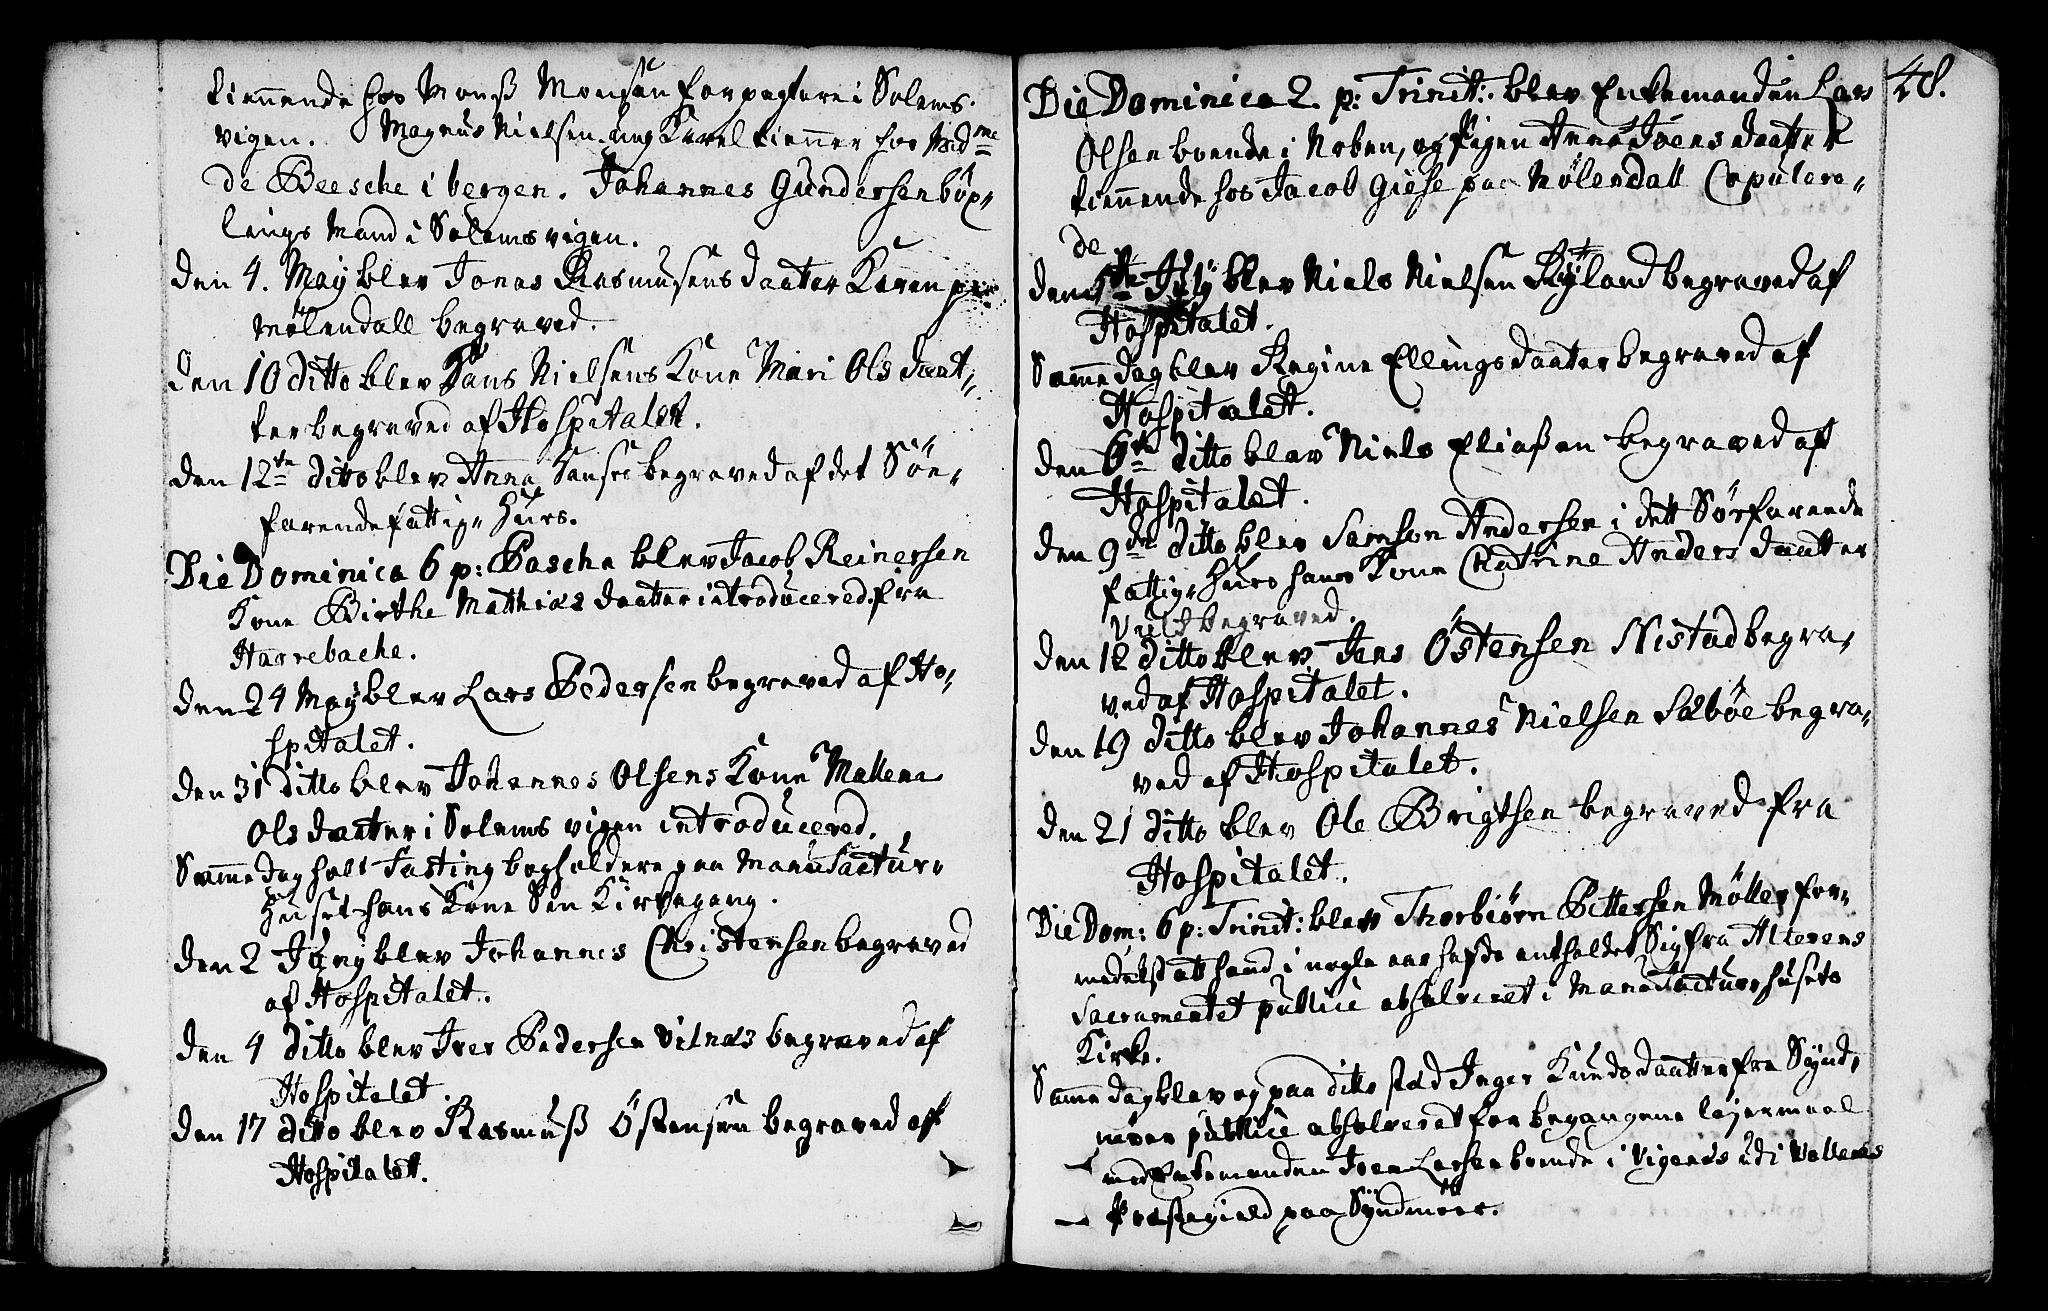 tiennende hos Monß Monsen forpagtere i Solems-
vigen. Magnus Nielsen ung Karel tienner hos Mad<sup>me</sup>
de Beesche i bergen. Johannes Gundersen böx-
lings Mand i Solemsvigen.
den 4. Maÿ blev Jonas Rasmusens daatter Karen paa
Mølendall begraved.
den 10 ditto blev Hans Nielsens Kone Mari Ols daat-
ter begraved af Hospitalet.
den 12<sup>te</sup> ditto blev Anna Hanses begraved af det Söe-
farende fattig-Huus.
Die Dominica 6 p: Pascha blev Jacob Reinersen
Kone Birthe Matthias daatter introducered fra
Harrebache.
den 24 Maÿ blev Lars Pedersen begraved af Ho-
spitalet.
den 31 ditto blev Johannes Olsens Kone Mallena
Ols daatter i Solems vigen introducered.
Samme dag holt Fasting bogholdere paa Manufactur-
Huset hans Kone Sin Kirkegang.
den 2 Junÿ blev Johannes Christensen begraved
af Hospitalet.
den 4 ditto blev Iver Pedersen Vilnæs begraved af
Hospitalet.
den 17 ditto blev Rasmuß Östensen begraved af
Hospitalet.
48.
Die Dominica 2. p: Trinit: blev Enkemanden Lars
Olsen boende i Noben, og Pigen Anna Joens daatter
tiennende hos Jacob Giese paa Mølendall Copulere-
de
den 5<sup>te</sup> Julÿ blev Niels Nielsen Rÿland begraved af
Hospitalet.
Samme dag blev Regine Ellings daatter begraved af
Hospitalet.
den 6<sup>te</sup> ditto blev Niels Eliaßen begraved af
Hospitalet.
den 9<sup>de</sup> ditto blev Samson Andersen i dett Söefarende
fattig-Huus hans Kone Chatrine Anders daatter
begraved.
den 12 ditto blev Jens Östensen Nistad begra-
ved af Hospitalet.
den 19 ditto blev Johannes Nielsen Sæbøe begra-
ved af Hospitalet.
den 21 ditto blev Ole Brigtsen begraved fra
Hospitalet.
Die Dom: 6 p: Trinit: blev Thorbiörn Pittersen Möller for-
medelst att hand i nogle aar hafde entholdet Sig fra Alterens
Sacramentet publice absolveret i Manufacturhusets
Kirke.
Samme dag blev og paa ditto stæd Inger Knuds daatter fra Synd-
möer publice absolveret for begangene lejermaal
med Enkemanden Iver Larsen boende i Vigenæs udi Vollens
Præstegield paa Sÿndmöer.